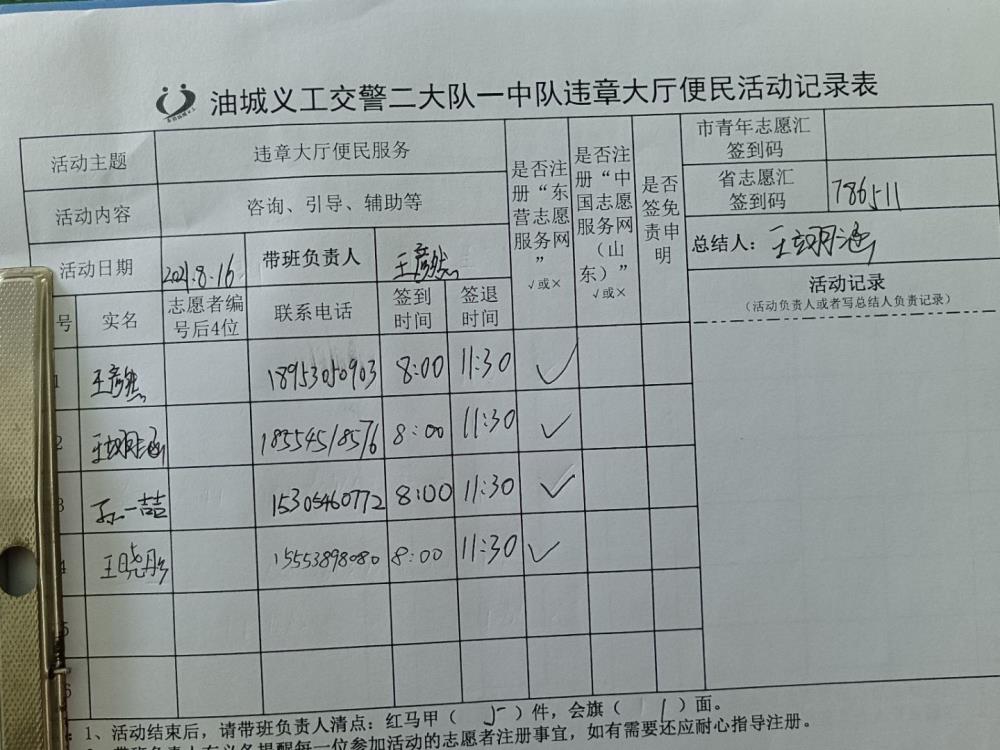 油城义工交警二大队一中队违章大厅便民活动记录表
活动主题 违章大厅便民服务
活动内容 咨询、引导、辅助等
活动日期 2021.8.16 带班负责人 王彦然
是否注册“东营志愿服务网” √或×
是否注册“中国志愿服务网（山东）” √或×
是否签免责申明
市青年志愿汇签到码
省志愿汇签到码 786511
总结人：
活动记录
（活动负责人或者写总结人负责记录）
号 实名 志愿者编号后4位 联系电话 签到时间 签退时间
1 王彦然 18953050903 8:00 11:30 ✓
2 18554518576 8:00 11:30 ✓
3 孙一喆 15305460772 8:00 11:30 ✓
4 王晓彤 15553898080 8:00 11:30 ✓
5
6
1、活动结束后，请带班负责人清点：红马甲（ 5 ）件，会旗（ 1 ）面。
带班负责人有义务提醒每一位参加活动的志愿者注册事宜，如有需要还应耐心指导注册。